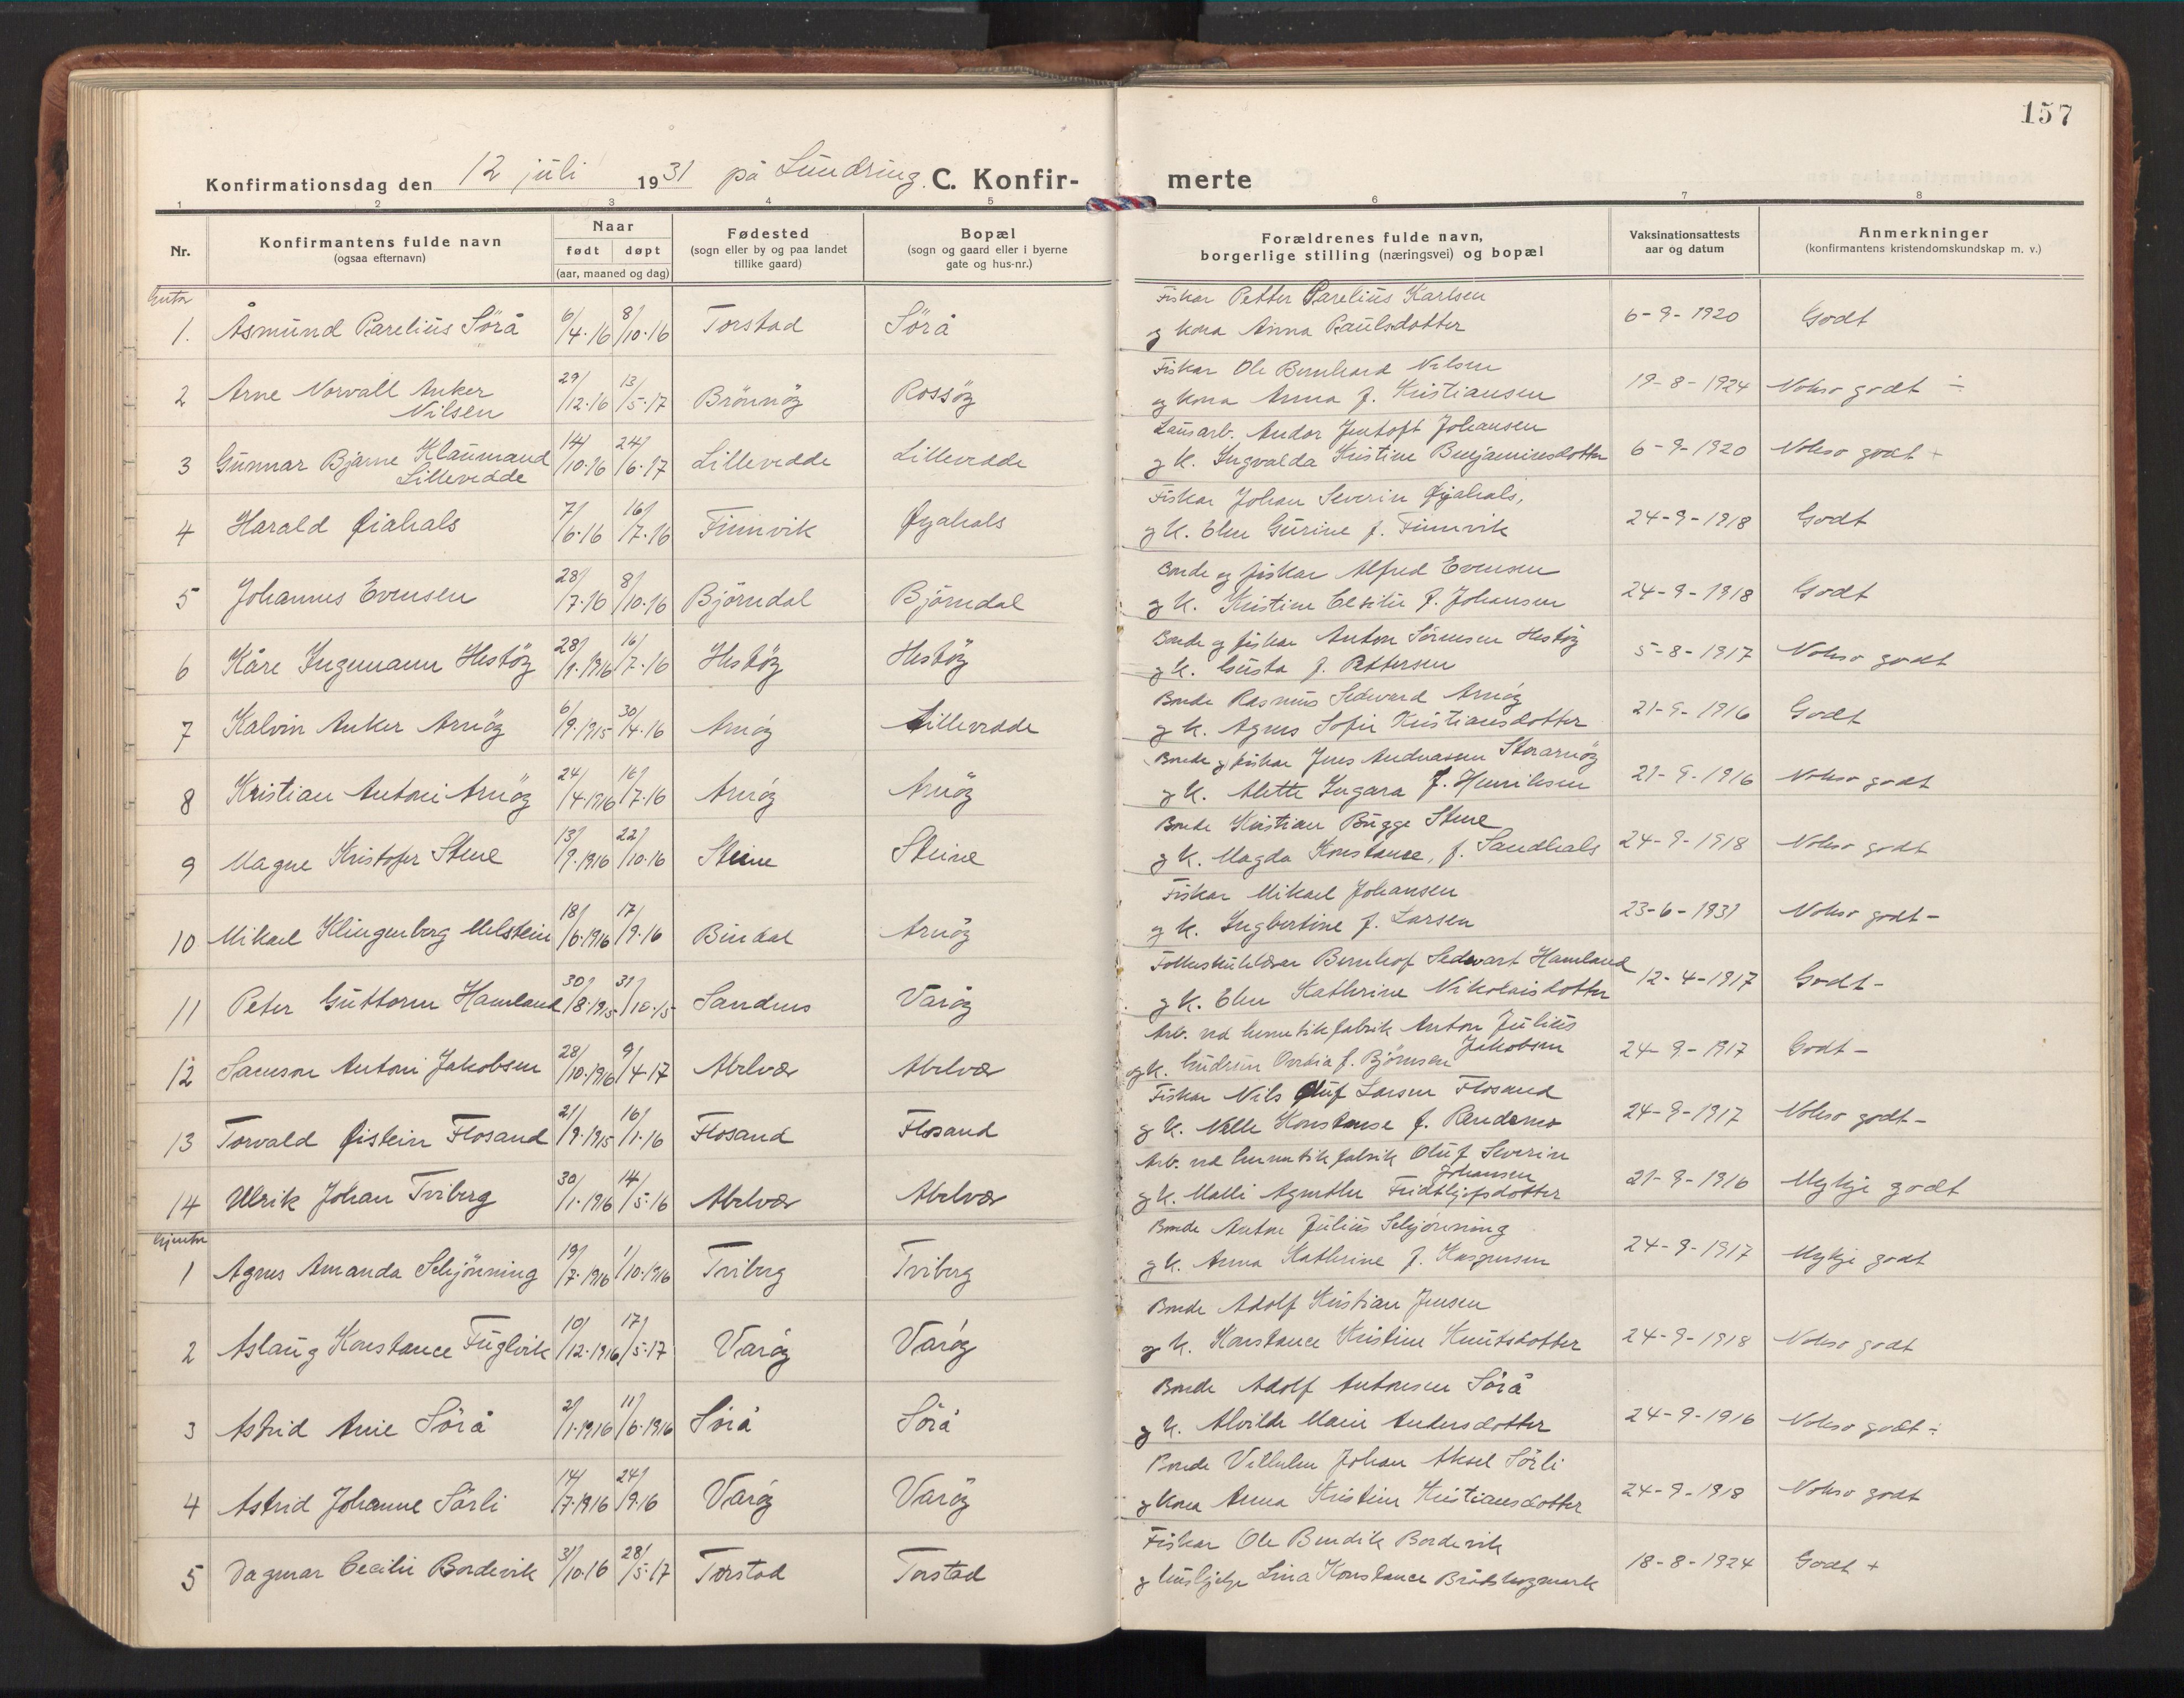 157
Konfirmationsdag den 12 juli 1931 på Lundring. C. Konfirmerte
1 2 3 4 5 6 7 8
Nr.
Konfirmantens fulde navn
(ogsaa efternavn)
Naar
født døpt
(aar, maaned og dag)
Fødested
(sogn eller by og paa landet
tillike gaard)
Bopæl
(sogn og gaard eller i byerne
gate og hus-nr.)
Forældrenes fulde navn,
borgerlige stilling (næringsvei) og bopæl
Vaksinationsattests
aar og datum
Anmerkninger
(konfirmantens kristendomskundskap m. v.)
Gutar
1. Åsmund Parelius Sörå 6/4.16 8/10.16 Torstad Sörå
Fiskar Petter Parelius Karlsen
og kona Anna Paulsdotter 6-9-1920 Godt
2 Arne Norvall Anker
Nilsen 29/12.16 13/5.17 Brönnöy Rossöy
Fiskar Ole Bernhard Nilsen
og kona Anna f. Kristiansen 19-8-1924 Nokso godt ÷
3 Gunnar Bjarne Klaumand
Lillevedde 14/10.16 24/6.17 Lillevedde Lillevedde
Lausarb. Andor Jentoft Johansen
og K. Ingvalda Kristine Benjaminsdotter 6-9-1920 Nokso godt +
4 Harald Øiahals 7/6.16 16/7.16 Finnvik Øyahals
Fiskar Johan Severin Øyahals,
og K. Elen Gurine f. Finnvik 24-9-1918 Godt
5 Johannes Evensen 28/7.16 8/10.16 Björndal Björndal
Bonde og fiskar Alfred Evensen
og K. Kristine f. Johansen 24-9-1918 Godt
6 Kåre Ingemann Hestöy 28/1.1916 16/7.16 Hestöy Hestöy
Bonde og fiskar Anton Sörensen Hestöy
og K. Gusta f. Pettersen 5-8-1917 Nokso godt
7 Kalvin Anker Arnöy 6/9.1915 30/4.16 Arnöy Lillevedde
Bonde Rasmus Sedward Arnöy
og K. Agnes Sofie Kristiansdotter 21-9-1916 Godt
8 Kristian Antoni Arnöy 24/4.1916 16/7.16 Arnöy Arnöy
Bonde og fiskar Jens Andreassen Storarnöy
og K. Alette Ingara f. Henriksen 21-9-1916 Nokso godt
9 Magne Kristofer Stene 13/9.1916 22/10.16 Steine Steine
Bonde Kristian Bugge Stene
og K. Magda Konstanse, f. Sandhals 24-9-1918 Nokso godt
10 Mikael Klingenberg Melstein 18/6.1916 17/9.16 Bindal Arnöy
Fiskar Mikael Johansen
og K. Ingbertine f. Larsen 23-6-1931 Nokso godt -
11 Peter Guttorm Hamland 30/8.1915 31/10.15 Sandnes Varöy
Folkeskulelærar Bernhof Sedevart Hamland
og K. Elen Kathrine Nikolaisdotter 12-4-1917 Godt -
12 Samson Antoni Jakobsen 28/10.1916 9/4.17 Abelvær Abelvær
Arb. ved hermetikfabrik Anton Julius
Jakobsen
og K. Gudrun Ovidia f. Björnsen 24-9-1917 Godt -
13 Torvald Øistein Flosand 21/9.1915 16/1.16 Flosand Flosand
Fiskar Nils Oluf Larsen Flosand
og K. Nelle Konstanse f. Rendemo 24-9-1917 Nokso godt -
14 Ulrik Johan Tviberg 30/1.1916 14/5.16 Abelvær Abelvær
Arb. ved hermetikfabrik Oluf Severin
Johansen
og K. Malli Agnethe Fridthjofsdotter 21-9-1916 Mykje godt
Gjentor
1 Agnes Amanda Schjönning 19/7.1916 1/10.1916 Tviberg Tviberg
Bonde Anton Julius Schjönning
og K. Anna Kathrine f. Kaspersen 24-9-1917 Mykje godt
2 Aslaug Konstance Fuglvik 10/12.1916 17/5.17 Varöy Varöy
Bonde Adolf Kristian Jensen
og K. Konstance Kristine Knutsdotter 24-9-1918 Nokso godt
3 Astrid Anie Sörå 2/1.1916 11/6.1916 Sörå Sörå
Bonde Adolf Antonsen Sörå
og K. Alvilde Marie Andersdotter 24-9-1916 Nokso godt ÷
4 Astrid Johanne Sörli 14/7.1916 24/9.16 Varöy Varöy
Bonde Vilhelm Johan Aksel Sörli
og kona Anna Kristine Kristiansdotter 24-9-1918 Nokso godt
5 Dagmar Cecilie Bordevik 31/10.16 28/5.17 Torstad Torstad
Fiskar Ole Bendik Bordevik
og Lina Konstance Bråtskogmark 18-8-1924 Godt +